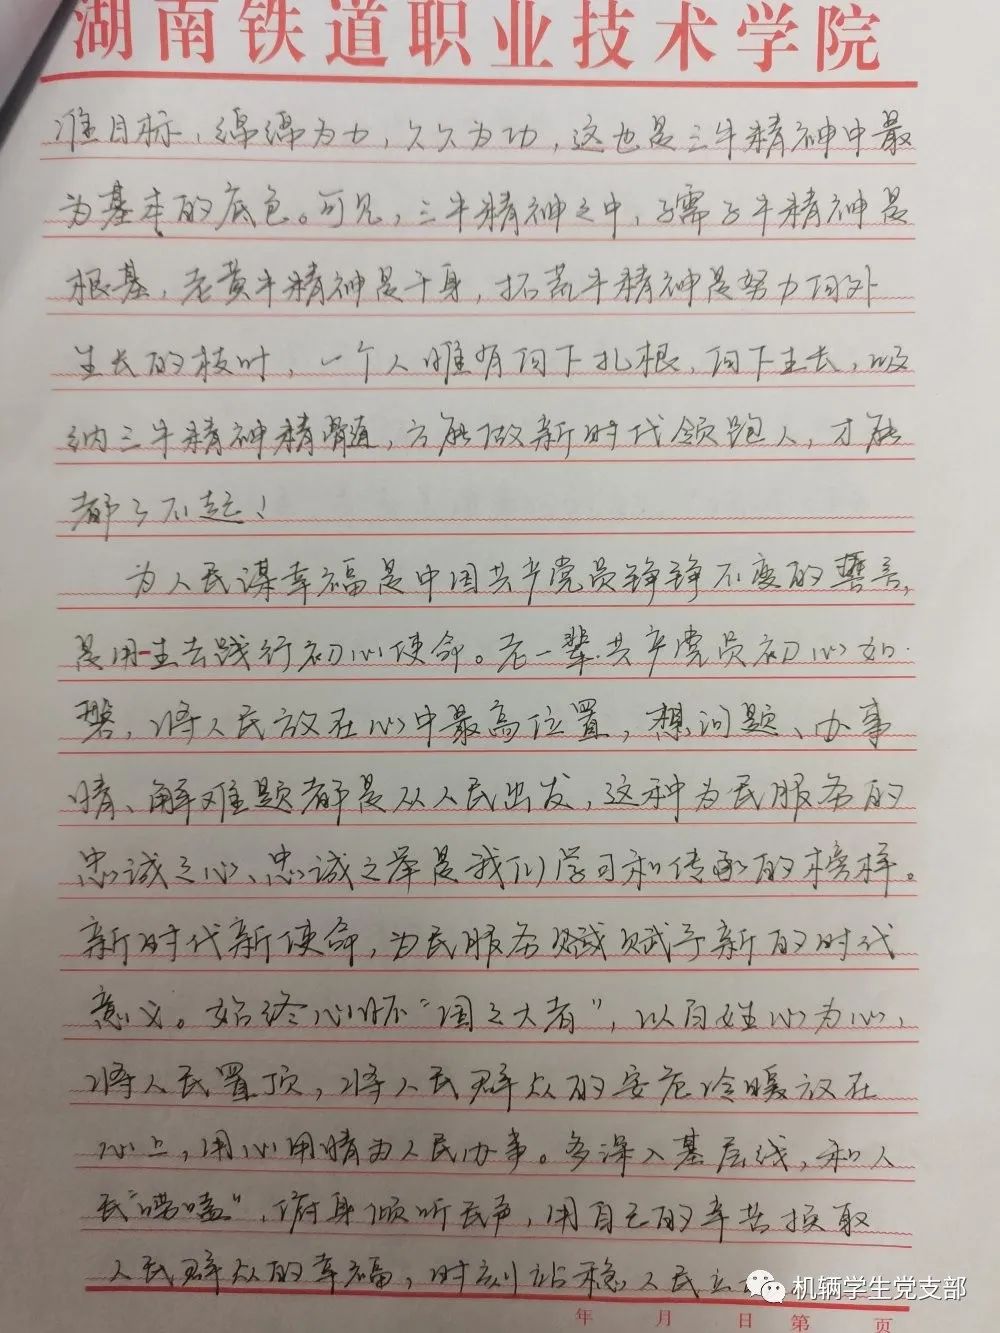 湖南铁道职业技术学院
准目标，绵绵为力，久久为功，这也是三牛精神中最
为基本的底色。可见，三牛精神之中，孺子牛精神是
根基，老黄牛精神是干身，拓荒牛精神是努力向外
生长的枝叶，一个人唯有向下扎根，向下生长，吸
纳三牛精神精髓，方能做新时代领跑人，才能
都了不起！
为人民谋幸福是中国共产党员铮铮不变的誓言，
是用一生去践行初心使命。老一辈共产党员初心如
磐，将人民放在心中最高位置，想问题、办事
情、解难题都是从人民出发，这种为民服务的
忠诚之心、忠诚之举是我们学习和传承的榜样。
新时代新使命，为民服务赋赋予新的时代
意义。始终心怀“国之大者”，以百姓心为心，
将人民置顶，将人民群众的安危冷暖放在
心上，用心用情为人民办事。多深入基层线，和人
民“唠嗑”，俯身倾听民声，用自己的辛苦换取
人民群众的幸福，时刻站稳人民立
机辆学生党支部
年 月 日 第 页